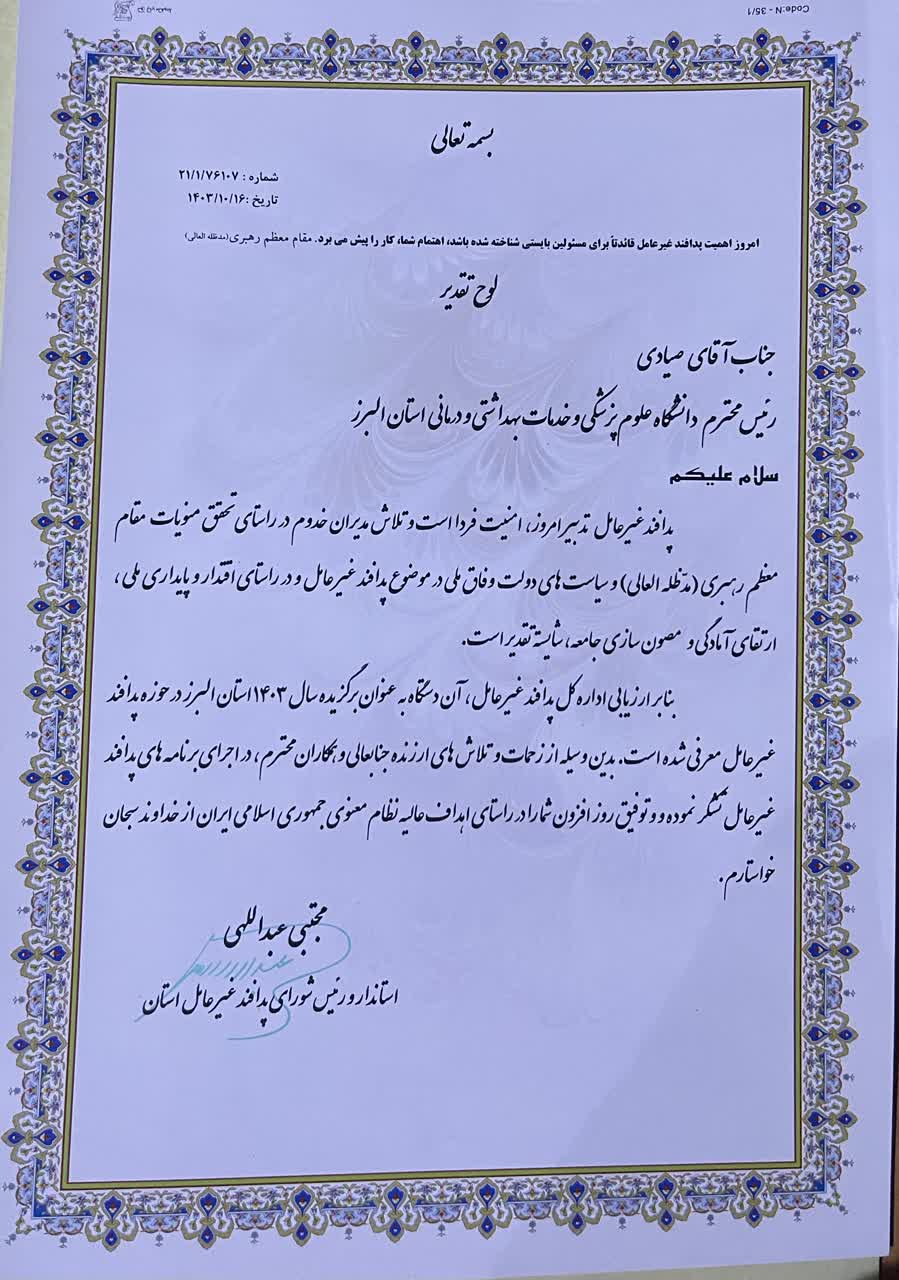 Code:N - 35/1
بسمه تعالی
شماره : ۲۱/۱/۷۶۱۰۷
تاریخ :۱۴۰۳/۱۰/۱۶
امروز اهمیت پدافند غیرعامل قائدتاً برای مسئولین بایستی شناخته شده باشد، اهتمام شما، کار را پیش می برد. مقام معظم رهبری(مدظله العالی)
لوح تقدیر
جناب آقای صیادی
رئیس محترم دانشگاه علوم پزشکی و خدمات بهداشتی و درمانی استان البرز
سلام علیکم
پدافند غیرعامل تدبیر امروز، امنیت فردا است و تلاش مدیران خدوم در راستای تحقق منویات مقام
معظم رهبری (مدّظله العالی) و سیاست های دولت وفاق ملی در موضوع پدافند غیرعامل و در راستای اقتدار و پایداری ملی ،
ارتقای آمادگی و مصون سازی جامعه، شایسته تقدیر است.
بنابر ارزیابی اداره کل پدافند غیرعامل، آن دستگاه به عنوان برگزیده سال ۱۴۰۳ استان البرز در حوزه پدافند
غیرعامل معرفی شده است. بدین وسیله از زحمات و تلاش های ارزنده جنابعالی و همکاران محترم، در اجرای برنامه های پدافند
غیرعامل تشکر نموده و و توفیق روز افزون شما را در راستای اهداف عالیه نظام معنوی جمهوری اسلامی ایران از خداوند سبحان
خواستارم.
مجتبی عبداللهی
استاندار و رئیس شورای پدافند غیرعامل استان